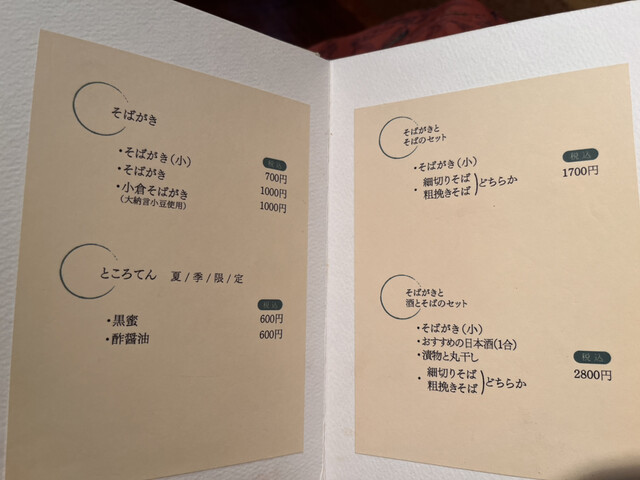 そばがき
税込
・そばがき（小） 700円
・そばがき 1000円
・小倉そばがき 1000円
（大納言小豆使用）
ところてん 夏/季/限/定
税込
・黒蜜 600円
・酢醤油 600円
そばがきと
そばのセット
税込
・そばがき（小） 1700円
・細切りそば
粗挽きそば）どちらか
そばがきと
酒とそばのセット
・そばがき（小）
・おすすめの日本酒（1合）
・漬物と丸干し
税込
・細切りそば
粗挽きそば）どちらか 2800円